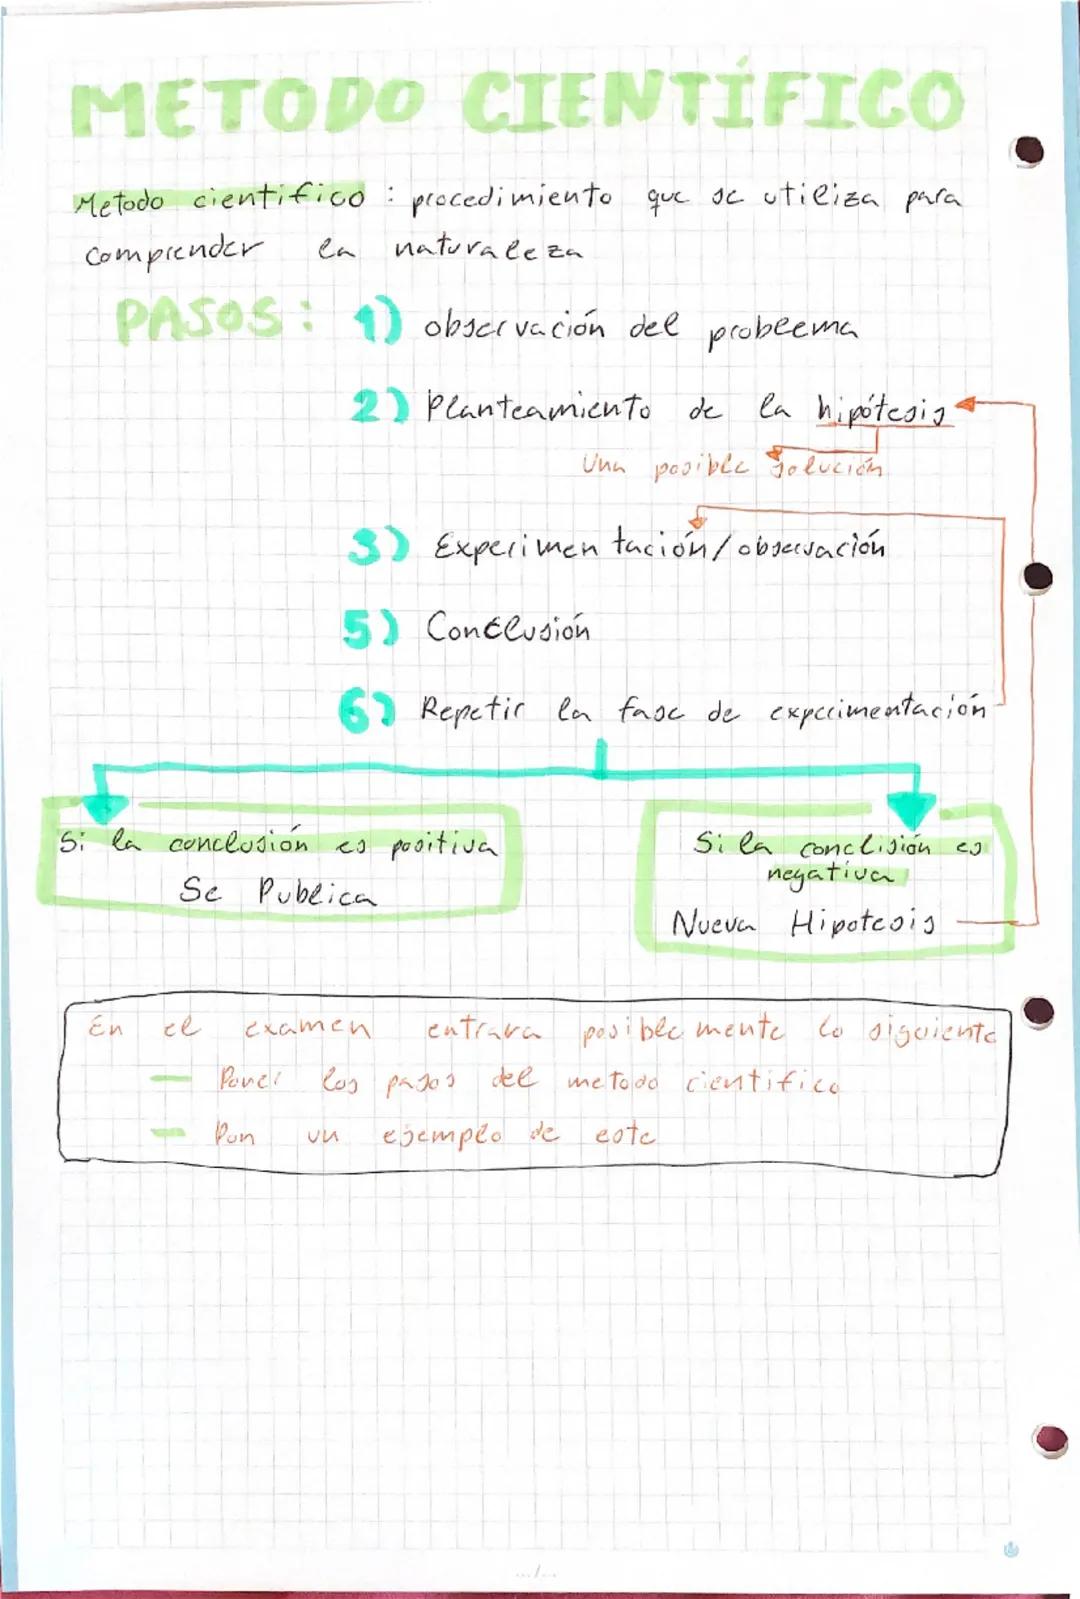 METODO CIENTÍFICO
Metodo cientifico : procedimiento que se utiliza para
comprender la naturaleza
PASOS: 1) observación del problema
2) Planteamiento de la hipótesis
Una posible solución
3) Experimentación/observación
5) Conclusión
6) Repetir la fase de experimentación
Si la conclusión es positiva
Se Publica
Si la conclisión es
negativa
Nueva Hipotesis
En el examen entrara posiblemente lo siguiente
— Poner los pasos del metodo cientifico
— Pon un ejemplo de este